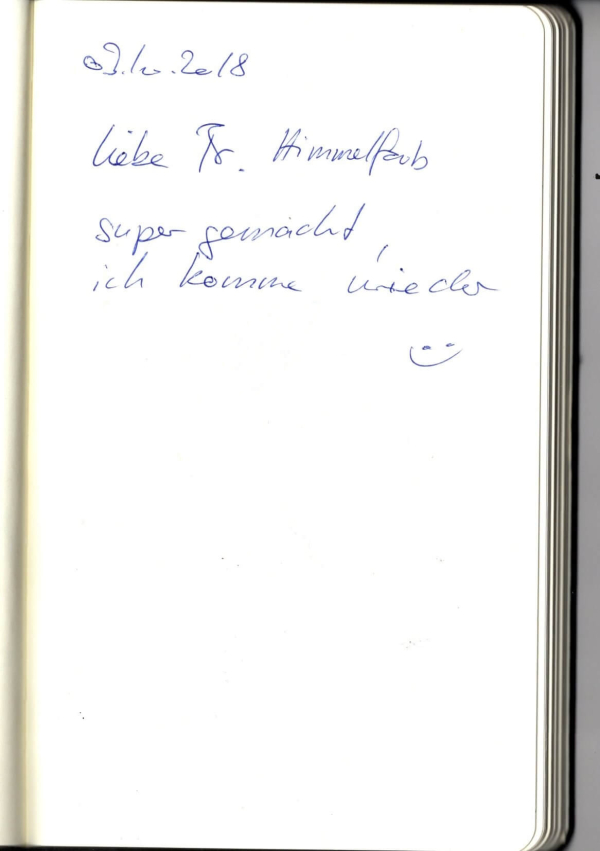 09.10.2018
liebe Fr. Himmelfarb
super gemacht,
ich komme wieder